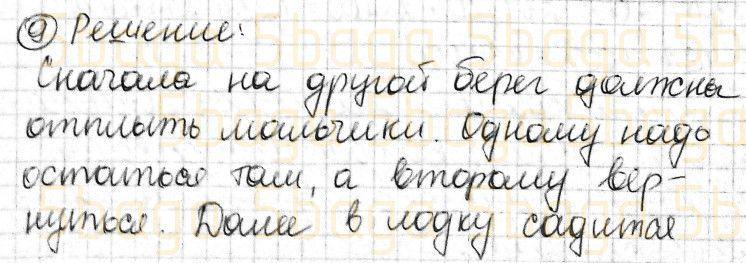 9 Решение:
Сначала на другой берег должны
отплыть мальчики. Одному надо
остаться там, а второму вер-
нуться. Далее в лодку садится